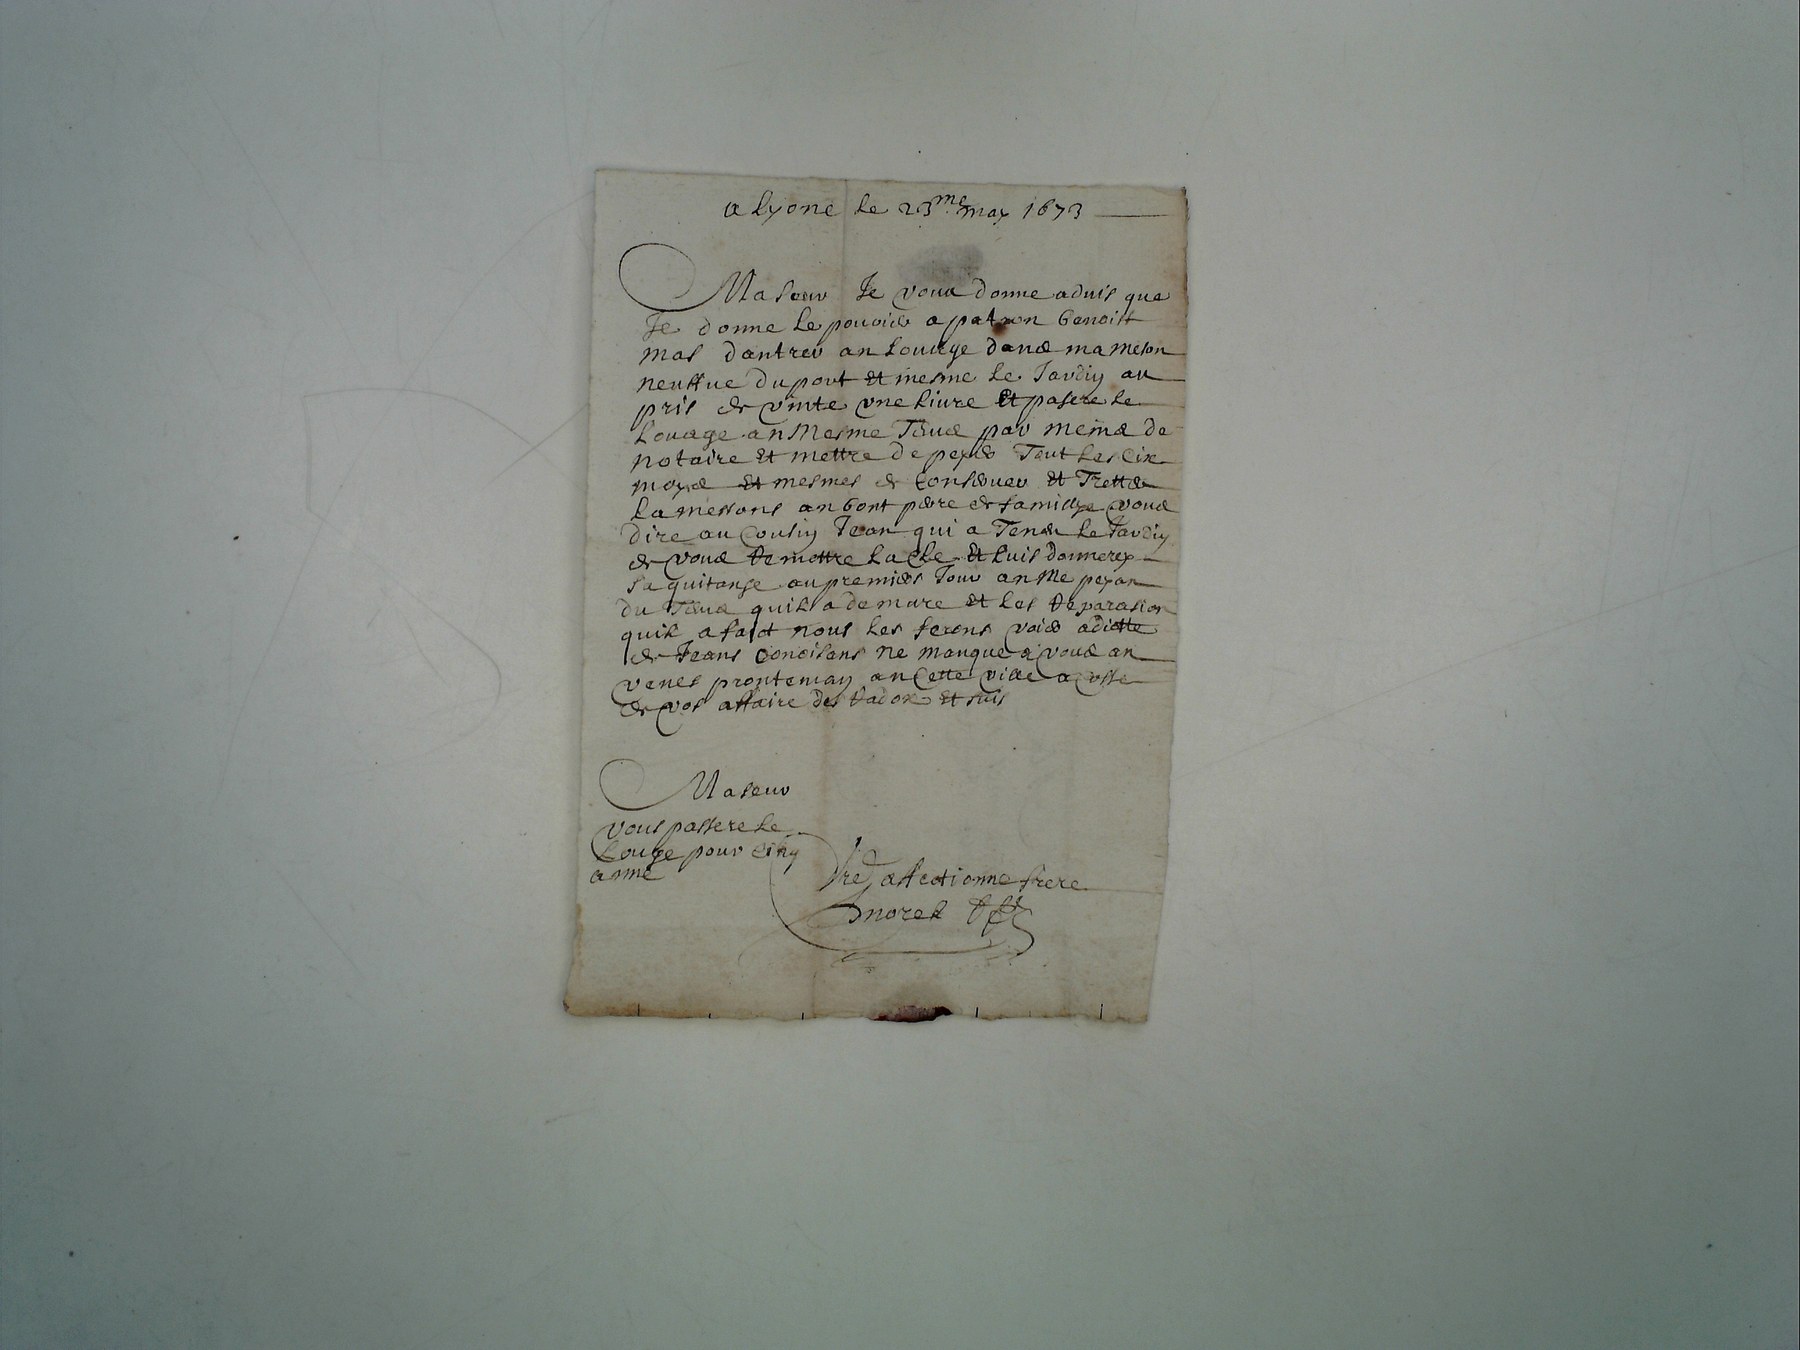 a lyone le 23me may 1673
Ma seur Je vous donne aduis que
Je donne le pouvoir a patron benoist
mas dantrer an louage dans ma meson
neuffue du port et mesme le Jardin au
pris de vinte une liure et pasere le
louage an mesme Tans par meins de
notaire et mettre de peyer Tout les six
moys et mesmes de conserver et Tretter
la mesons an bont pere de famillye vous
dire au cousin Jean qui a Tenu le Jardin
de vous remettre la cle et luis donnerey
sa quitanse au premier Jour an me peyan
du Tans quil a demure et les reparasion
quil a faict nous les ferons voir a dictte
de Jeans conoisans ne manque a vous an
venes pronteman an cette ville a
de vos affaire des et suis
Ma seur
vous passere le
louage pour cinq
anne
Vre affectionne frere
morel